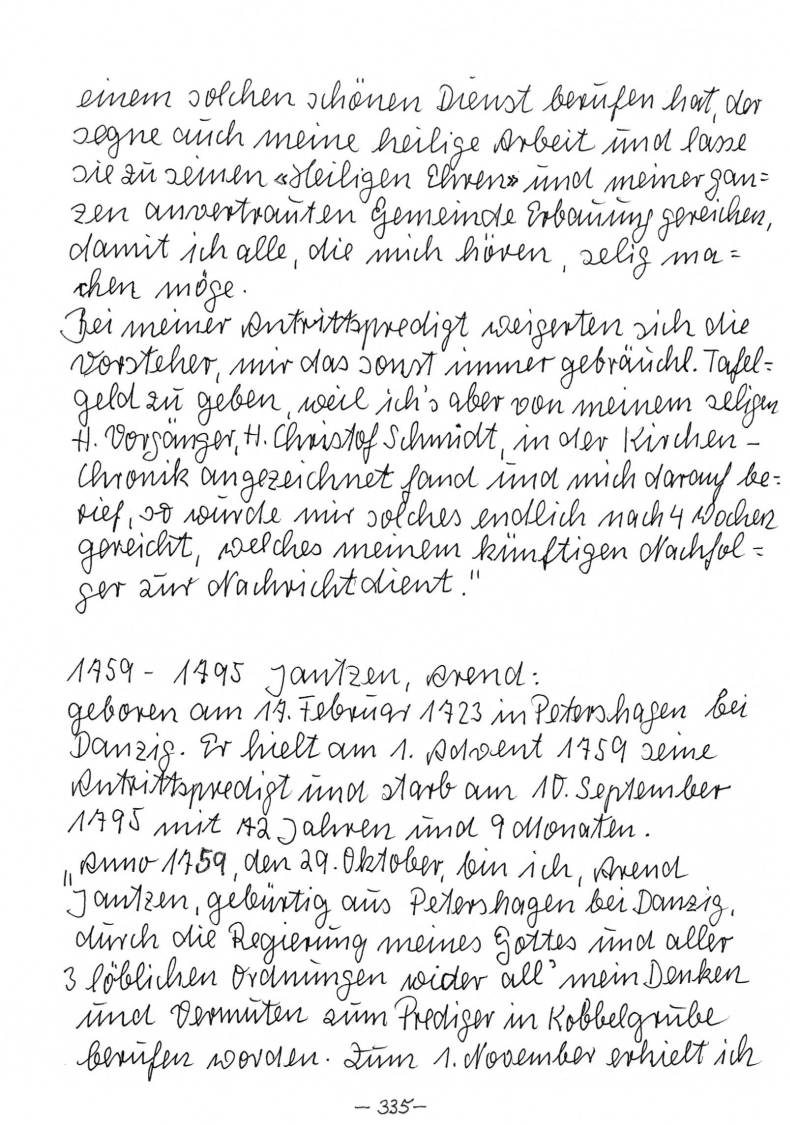 einem solchen schönen Dienst berufen hat, der
segne auch meine heilige Arbeit und lasse
sie zu seinen «Heiligen Ehren» und meiner gan=
zen anvertrauten Gemeinde Erbauung gereichen,
damit ich alle, die mich hören, selig ma=
chen möge.
Bei meiner Antrittspredigt weigerten sich die
Vorsteher, mir das sonst immer gebräuchl. Tafel=
geld zu geben, weil ich's aber von meinem seligen
H. Vorgänger, H. Christof Schmidt, in der Kirchen-
Chronik angezeichnet fand und mich darauf be=
rief, so wurde mir solches endlich nach 4 Wochen
gereicht, welches meinem künftigen Nachfol=
ger zur Nachricht dient."
1759 - 1795 Jantzen, Arend:
geboren am 17. Februar 1723 in Petershagen bei
Danzig. Er hielt am 1. Advent 1759 seine
Antrittspredigt und starb am 10. September
1795 mit 72 Jahren und 9 Monaten.
„Anno 1759, den 29. Oktober, bin ich, Arend
Jantzen, gebürtig aus Petershagen bei Danzig,
durch die Regierung meines Gottes und aller
3 löblichen Ordnungen wider all' mein Denken
und Vermuten zum Prediger in Kobbelgrube
berufen worden. Zum 1. November erhielt ich
- 335 -